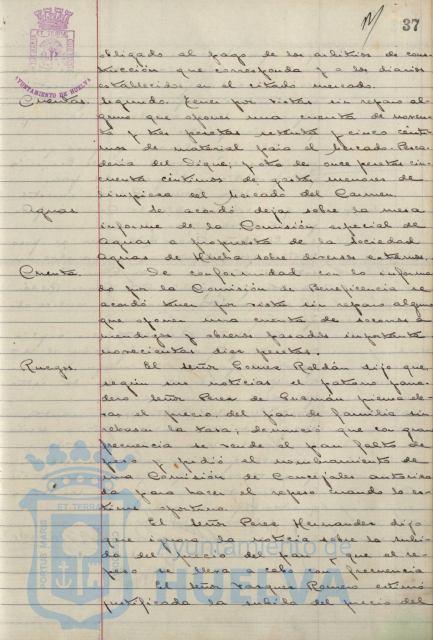 37
AYUNTAMIENTO DE HUELVA
obligado al pago de los arbitrios de cons-
trucción que corresponda y a los diarios
establecidos en el citado mercado.
Cuentas. Segundo. Tener por vistas sin reparo al-
guno que oponer una cuenta de noven-
ta y tres pesetas setenta y cinco cénti-
mos de material para el Mercado-Pesca-
dería del Dique; y otra de once pesetas cin-
cuenta céntimos de gastos menores de
limpieza del Mercado del Carmen.
Aguas. Se acordó dejar sobre la mesa
informe de la Comisión especial de
Aguas a propuesta de la Sociedad
Aguas de Huelva sobre diversos extremos.
Cuenta. De conformidad con lo informa-
do por la Comisión de Beneficencia se
acordó tener por vista sin reparo alguno
que oponer una cuenta de socorros a
mendigos y obreros parados importante
novecientas diez pesetas.
Ruegos. El Señor Gomez Roldán dijo que
según sus noticias el patrono pana-
dero Señor Perez de Guzmán piensa ele-
var el precio del pan de familia sin
rebasar la tasa; denunció que con gran
frecuencia se vende el pan falto de
peso y pidió el nombramiento de
una Comisión de Concejales autoriza-
da para hacer el repeso cuando lo es-
time oportuno.
El Señor Perez Hernandez dijo
que ignora la noticia sobre la subi-
da del precio del pan y que el re-
peso se lleva a cabo con frecuencia
El Señor Vazquez Romero estimó
justificada la subida del precio del
PORTUS MARIS ET TERRAE
Ayuntamiento de
HUELVA